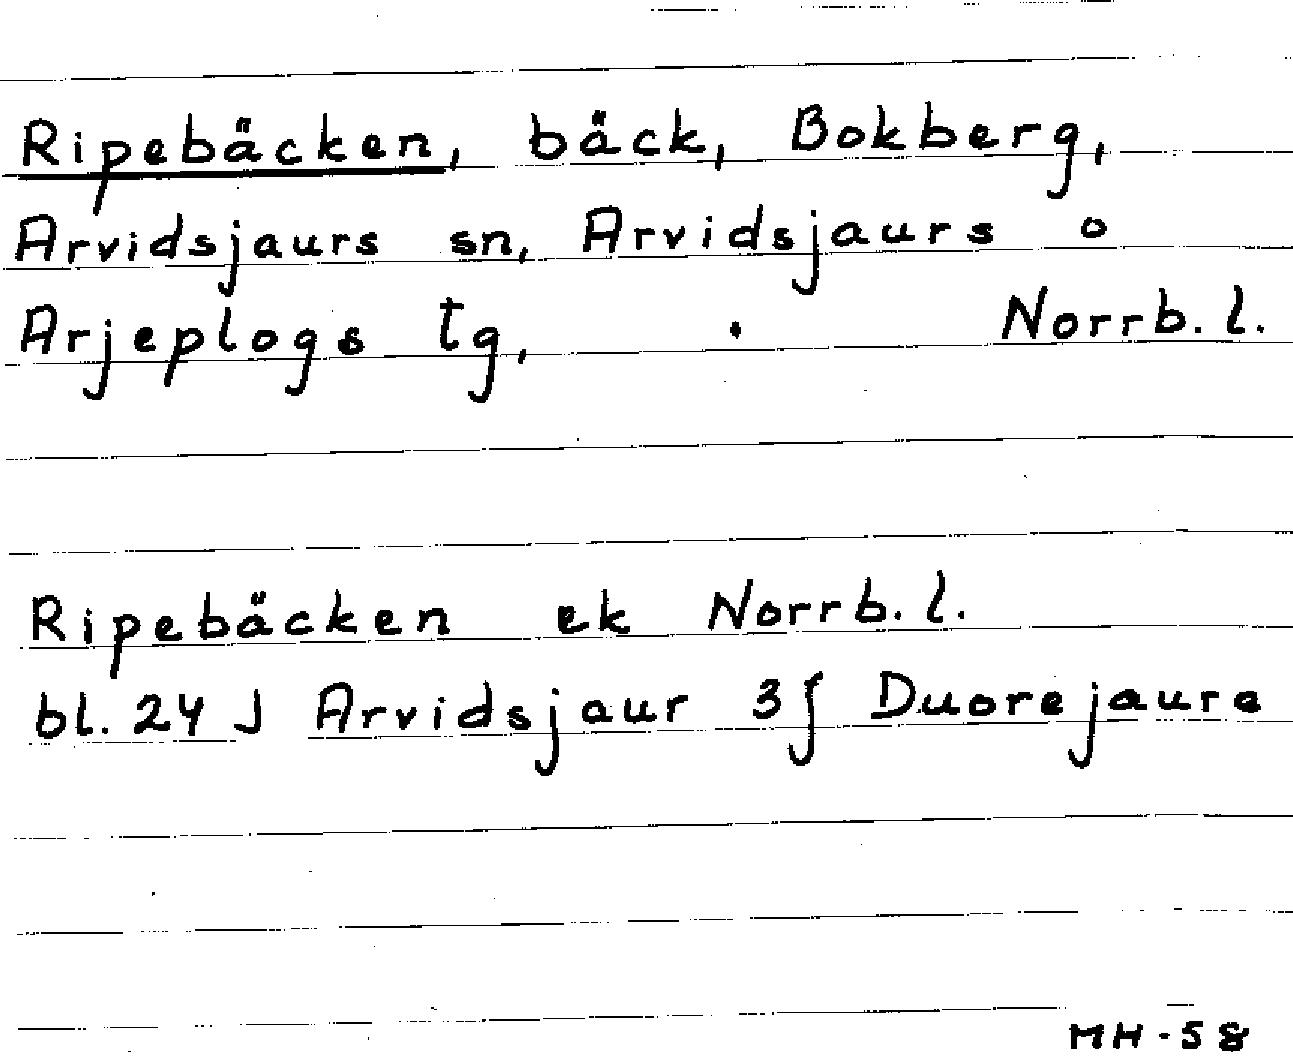 Ripebäcken, bäck, Bokberg,
Arvidsjaurs sn, Arvidsjaurs o
Arjeplogs tg, Norrb. l.
Ripebäcken ek Norrb. l.
bl. 24 J Arvidsjaur 3f Duorejaure
MH-58